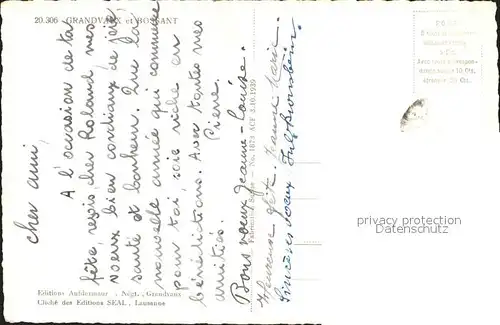 20.306 - GRANDVAUX et BOSSANT
cher ami,
A l'occasion de ta
fête, reçois, cher Roland mes
voeux bien cordiaux de joie,
santé et bonheur. Que la
nouvelle année qui commence
pour toi, soie riche en
bénédictions. Avec toutes mes
amitiés. Pierre.
Bons voeux. Jeanne-Louise.
Sincères voeux
Fabrication Suisse — No. 1673 ACF 3.10.1939
Editions Négt., Grandvaux
Cliché des Editions SEAL, Lausanne
privacy protection
Datenschutz